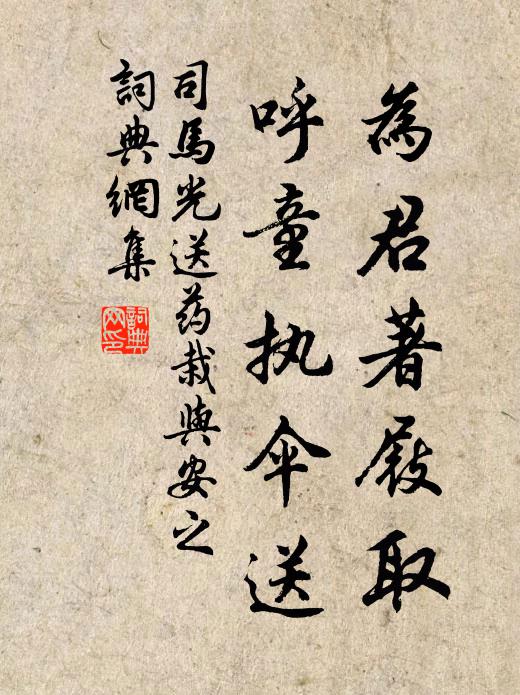 為君著屐取
呼童执伞送
司馬光送药栽與安之
詞典網集
詞典
网印